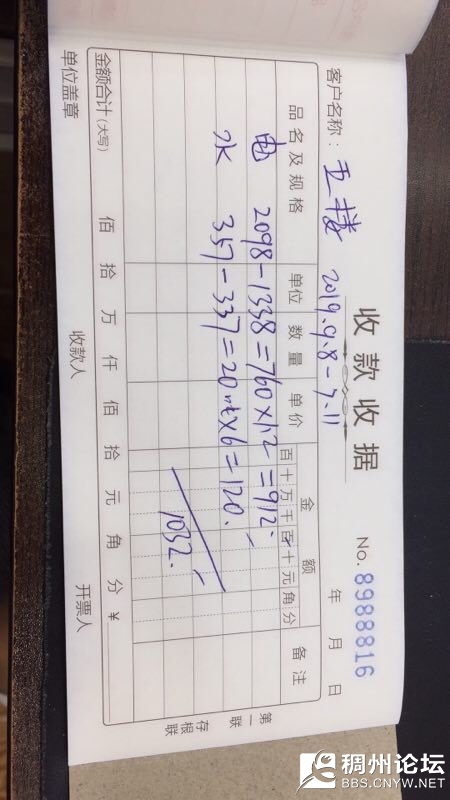 收款收据
No. 8988816
客户名称： 五楼 2019.9.8-7.11
年 月 日
品名及规格 单位 数量 单价 金额 备注
百十万千百十元角分
电 2098-1338=760×1.2=912.-
水 357-337=20吨×6=120.-
1032.-
金额合计(大写) 佰 拾 万 仟 佰 拾 元 角 分 ￥
单位盖章 收款人 开票人
第一联
存根联
稠州论坛
BBS.CNYW.NET